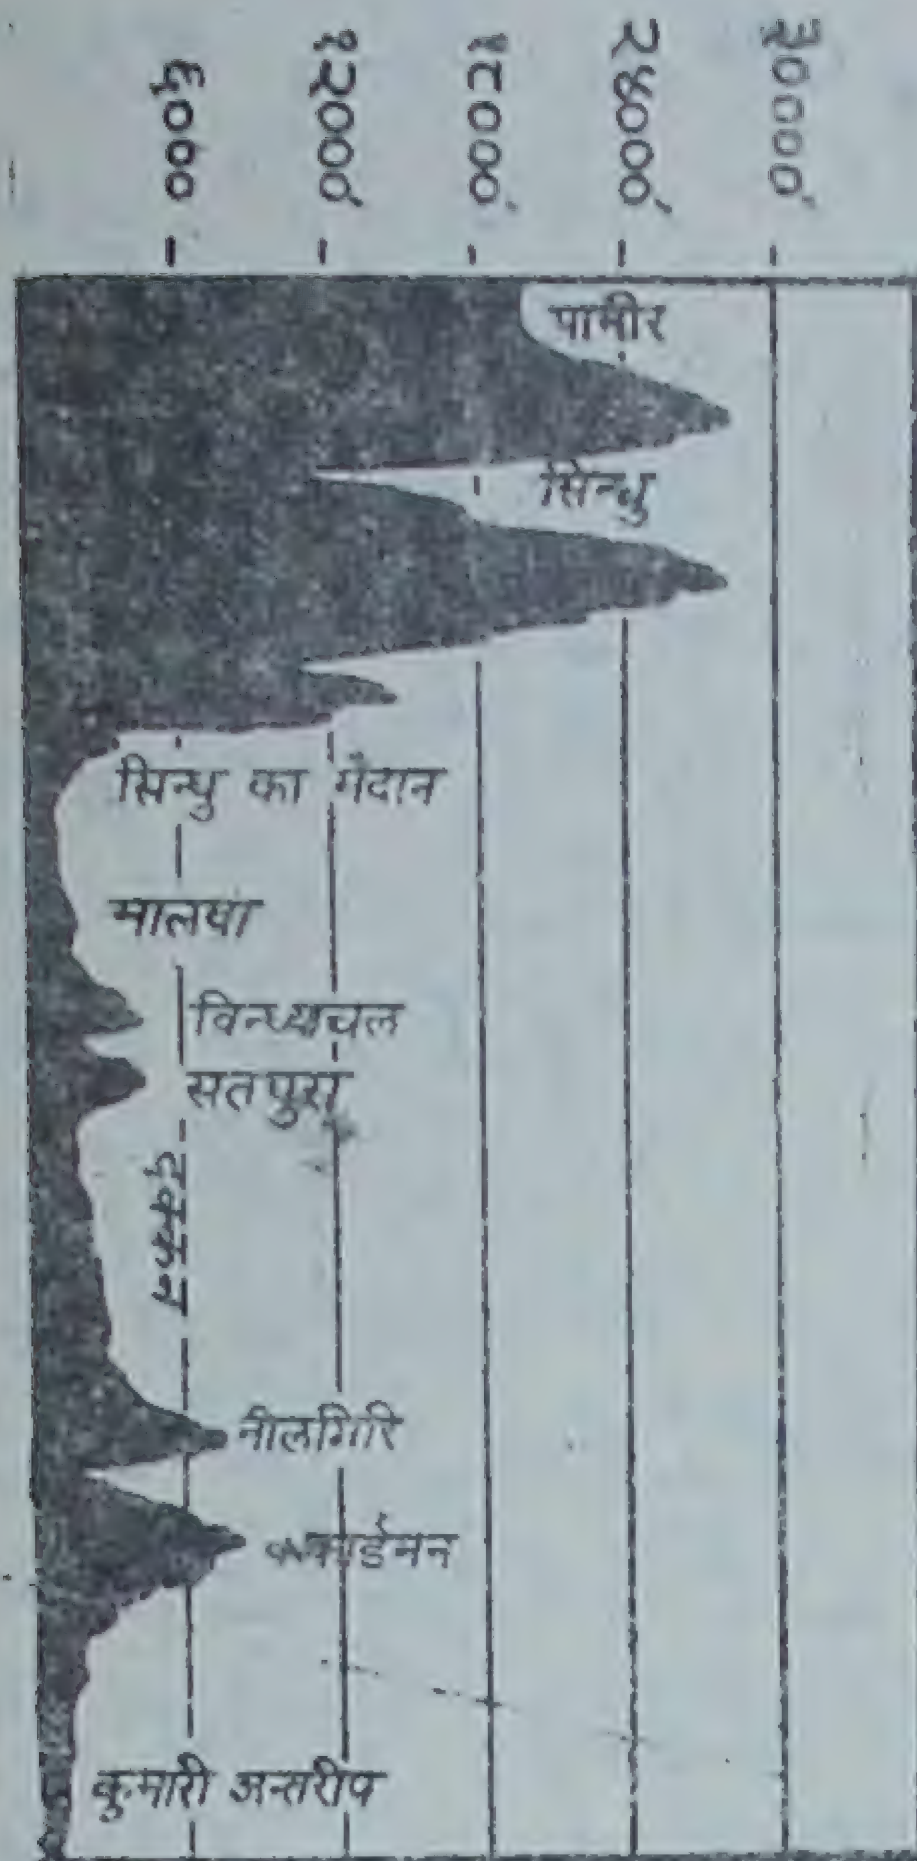 ६०००
१२०००'
१८०००'
२४०००'
३००००'
पामीर
सिन्धु
सिन्धु का मैदान
मालवा
विन्ध्याचल
सतपुरा
दक्कन
नीलगिरि
कार्डेमन
कुमारी अन्तरीप